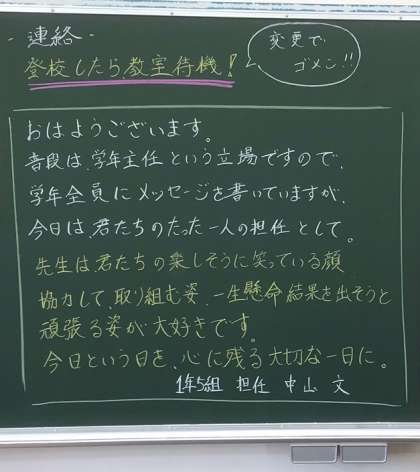 - 連絡 -
登校したら、教室待機!
変更で
ゴメン!!
おはようございます。
普段は、学年主任という立場ですので、
学年全員にメッセージを書いていますが、
今日は、君たちのたった一人の担任として。
先生は、君たちの楽しそうに笑っている顔
協力して、取り組む姿、一生懸命結果を出そうと
頑張る姿が大好きです。
今日という日を、心に残る大切な一日に。
1年5組 担任 中山 文